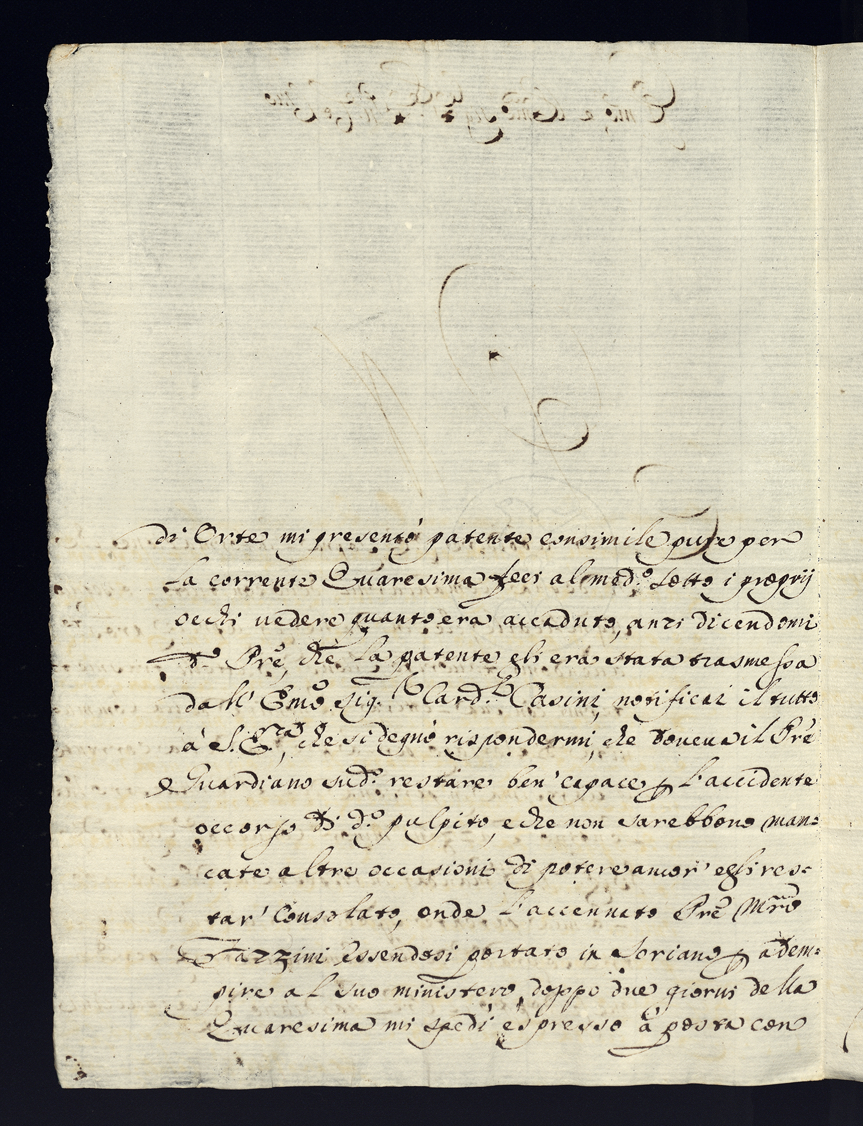 di Orte mi presentò patente consimile pure per
la corrente Quaresima feci al med.º sotto i proprij
occhi vedere quanto era accaduto, anzi dicendomi
d.º Prē, che la patente gli era stata trasmessa
dall' Emō Sig.r Card.le Casini, notificai il tutto
à S. Em.za, che si degnò rispondermi, che doveva il Prē
Guardiano sud.º restare ben' capace p l'accidente
occorso di d.º pulpito, e che non sarebbono man=
cate altre occasioni di potere ancor' egli res=
tar' Consolato, onde l'accennato Prē Mrō
Tazzini essendosi portato in Soriano p adem=
pire al suo ministero, doppo due giorni della
Quaresima mi spedì espresso à posta con